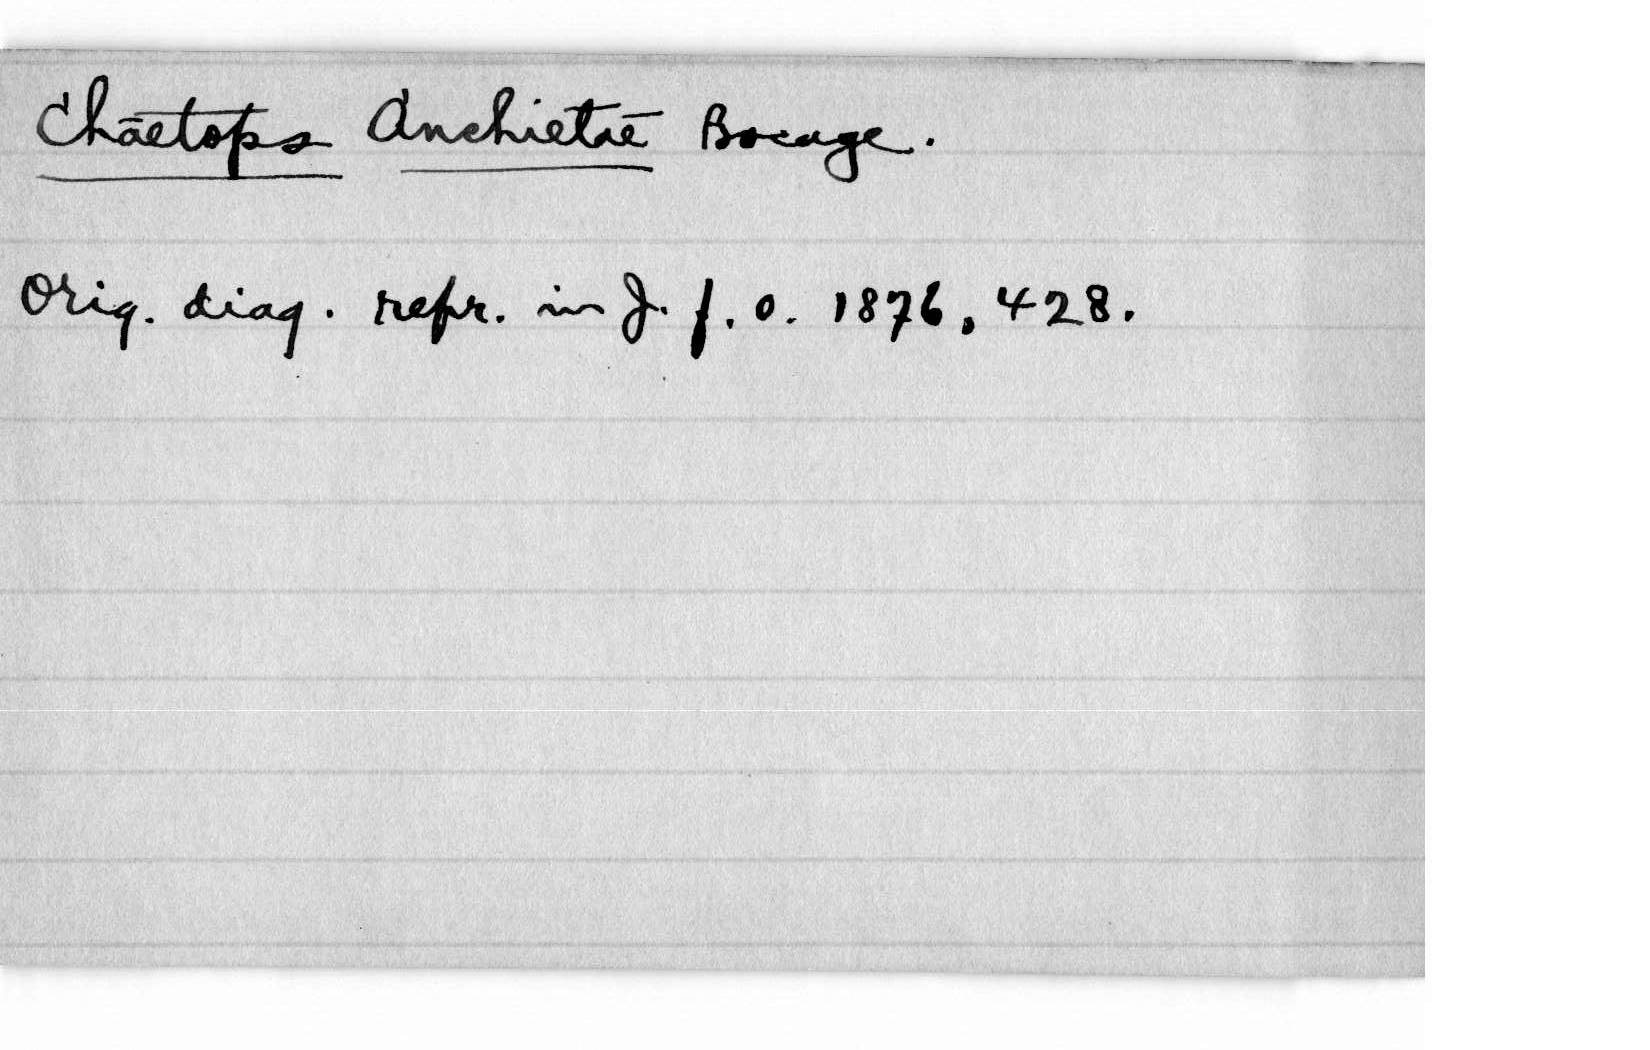 Chaetops Anchietae Bocage.
Orig. diag. repr. in J. f. O. 1876, 428.